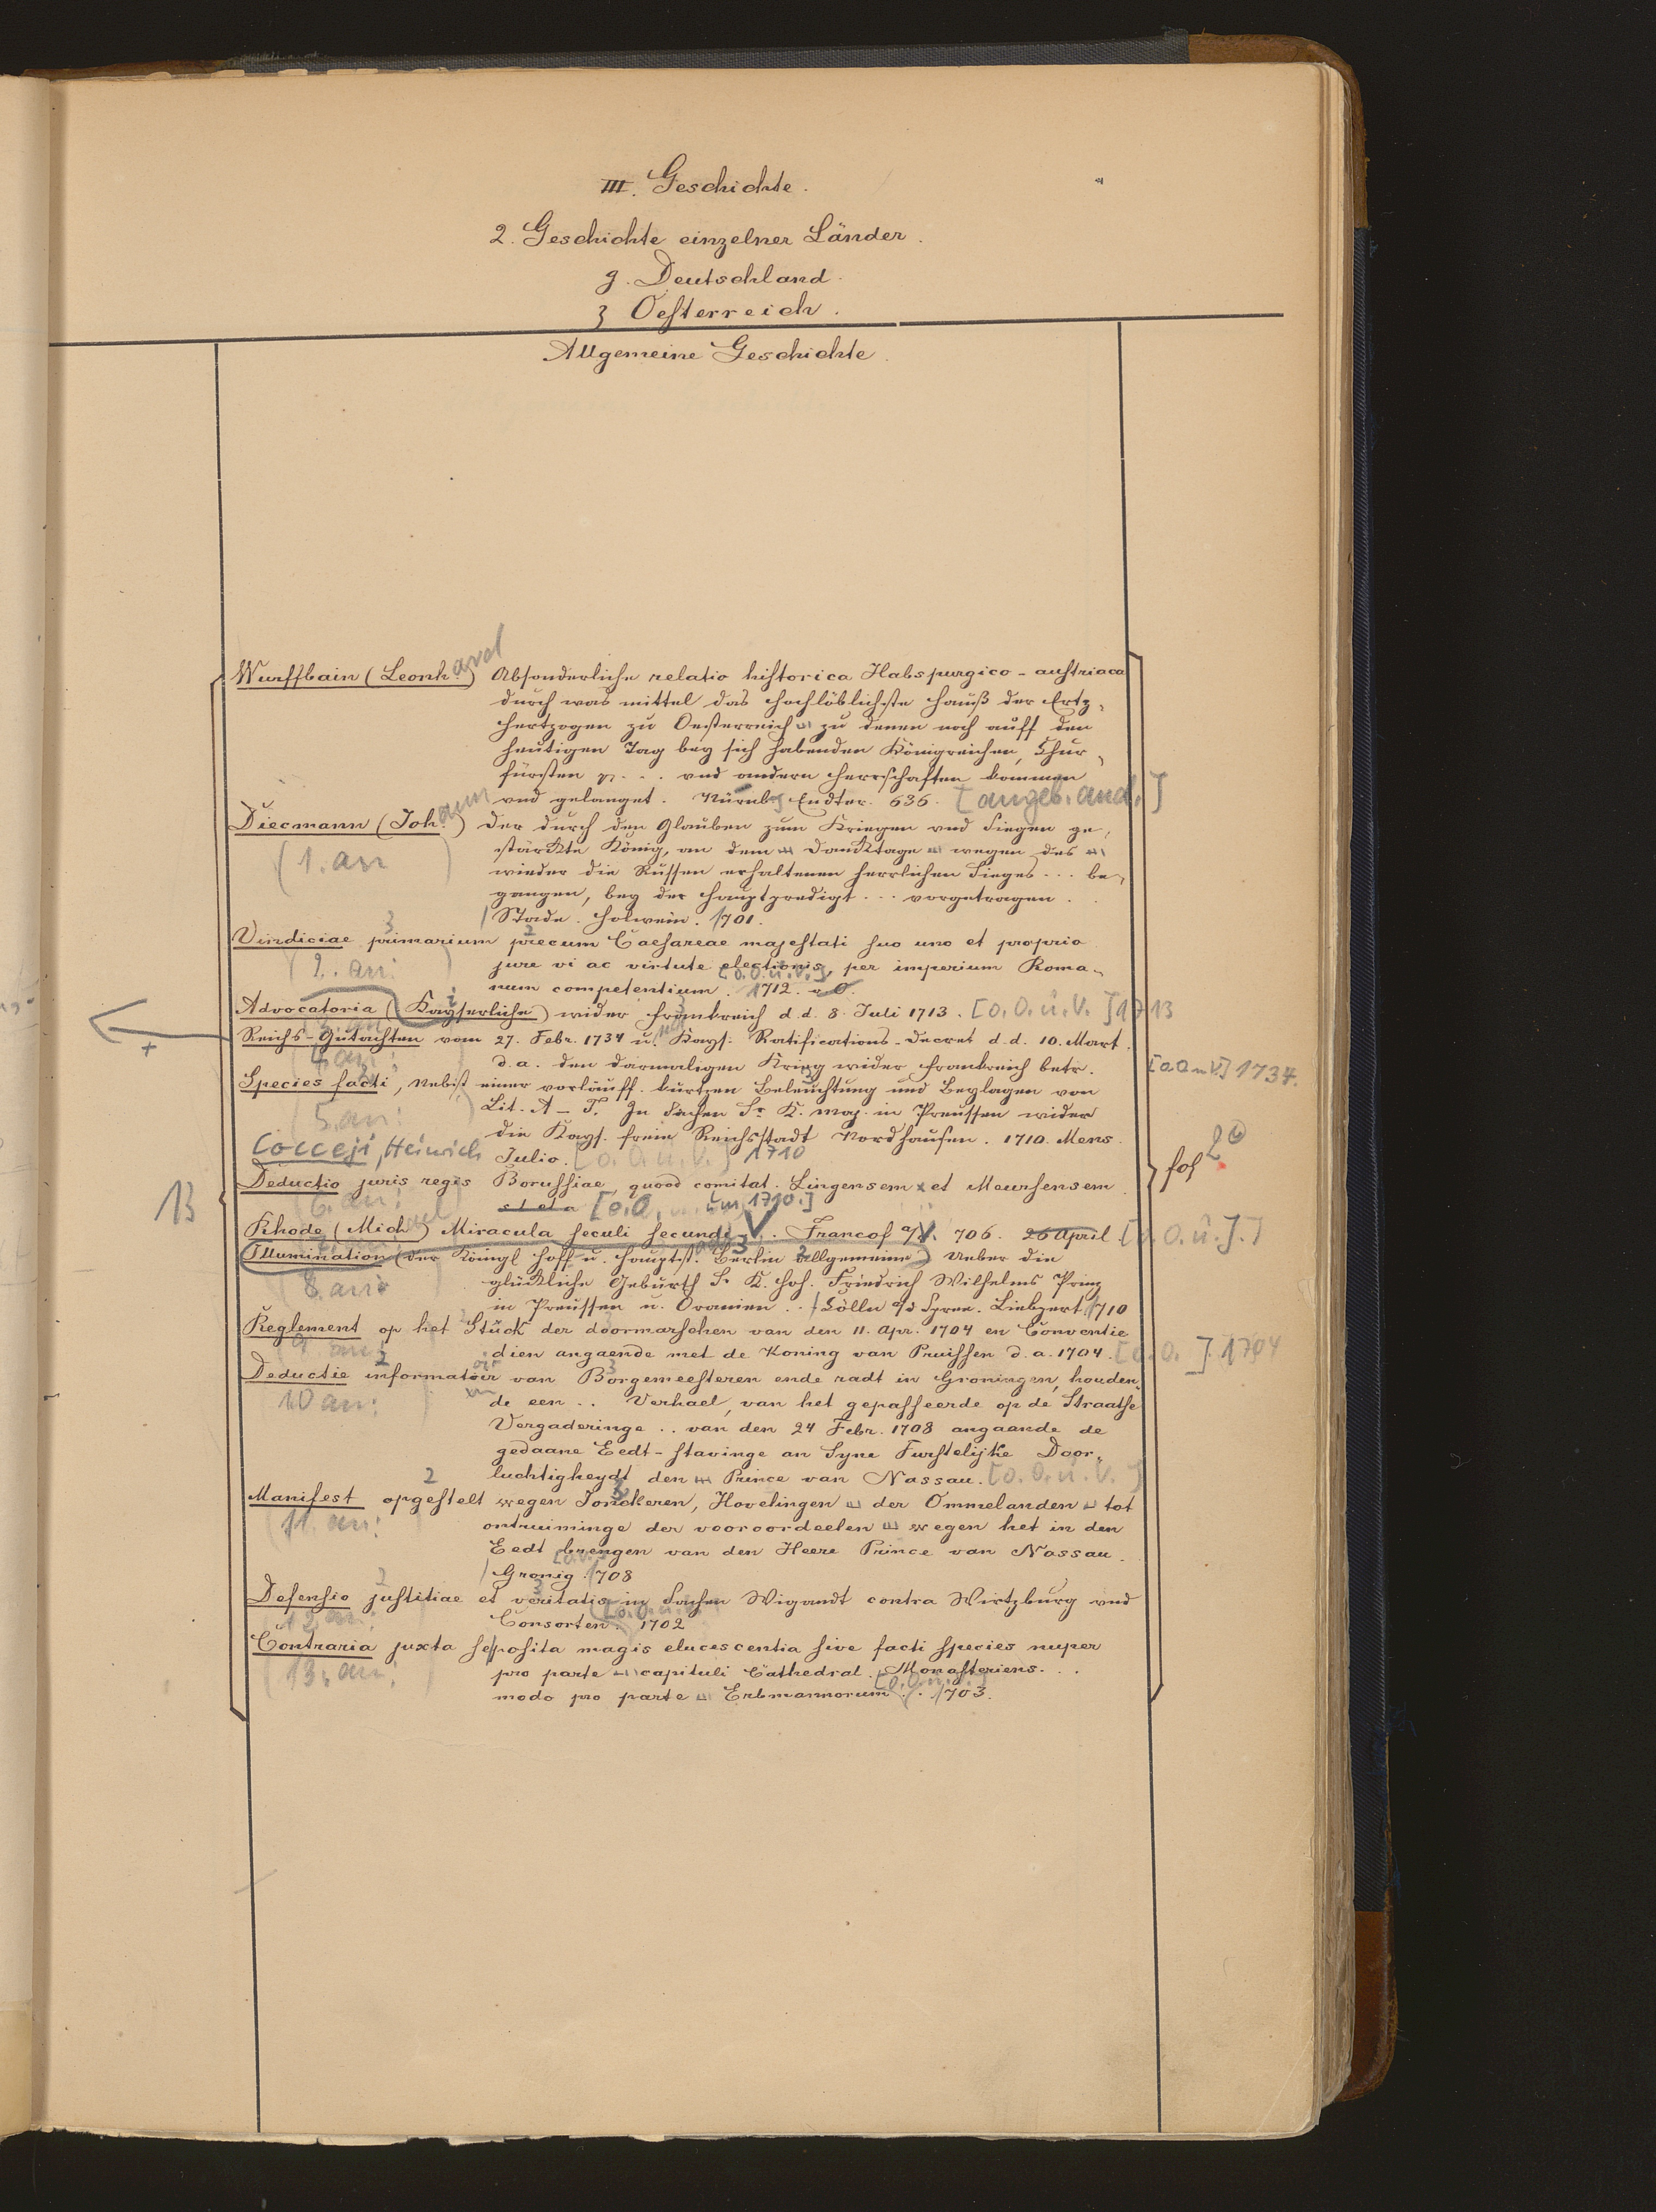 III. Geschichte.
2. Geschichte einzelner Länder.
g. Deutschland.
3 Oesterreich.
Allgemeine Geschichte.
Wurffbain (Leonhard) Absonderliche relatio historica Habspurgico-austriaca
durch was mittel das hochlöblichste Hauß der Ertz-
hertzogen zu Oesterreich zu denen noch auff den
heutigen Tag bey sich habenden Königreichen, Chur-
fürsten ... und andern Herrschaften kommen
und gelanget. Nürnbg Endter. 636. [angeb. and.]
Diecmann (Johann) Der durch den Glauben zum Kriegen und Siegen ge-
stärckte König, an dem Danktage wegen des
wieder die Russen erhaltenen herrlichen Sieges ... be-
(1. an
gangen, bey der Hauptpredigt ... vorgetragen.
Stade. Holwein. 1701.
Vindiciae primarium precum Caesareae majestati suo uno et proprio
jure vi ac virtute electionis, per imperium Roma-
(2. an: )
num competentium. 1712. o. O. [o. O. u. V.]
Advocatoria (Kayserliche) wider Frankreich d. d. 8. Juli 1713. [o. O. u. V.] 1713
3. an
Reichs-Gutachten vom 27. Febr. 1734 u. Kays: Ratifications-Decret d. d. 10. Mart.
4. an:
d. a. den darmaligen Krieg wider Frankreich betr. [o O u V.] 1734.
Species facti, Nebst einer vorläuff. kurtzen Beleuchtung und Beylagen von
5. an:
Lit. A-T. In Sachen Sr. K. Maj. in Preussen wider
die Kays. freie Reichsstadt Nordhausen. 1710. Mens.
Cocceji, Heinrich Julio. [o. O. u. V.] 1710
fol 2°
Deductio juris regis Borussiae, quoad comitat. Lingensem et Meursensem
6. an:
[o. O. u. 1710.]
13
Rhode (Michael) Miracula seculi secundi V. Francof a/V. 706. 26 April. [o. O. u. J.]
Illumination (der Königl Hoff u. Hauptst. Berlin allgemeine) Ueber die
8. an:
glückliche Geburth Sr K. Hoh. Friedrich Wilhelms Prinz
in Preussen u. Oranien .. Cölln a/d Spree. Liebpert. 1710
Reglement op het Stück der doormarschen van den 11. Apr. 1704 en Conventie
9. an:
dien angaende met de Koning van Pruissen d. a. 1704. [o. O. ] 1704
Deductie informatoir van Borgemeesteren ende radt in Groningen, houden-
10 an:
de een .. Verhael, van het gepasseerde op de Straatse
Vergaderinge .. van den 24 Febr. 1708 angaande de
gedaane Eedt-stavinge an Syne Furstelijke Door-
luchtigheydt den Prince van Nassau. [o. O. u. V.]
Manifest opgestelt wegen Jonckeren, Hovelingen der Ommelanden tot
11. an:
ontruiminge der vooroordeelen wegen het in den
Eedt brengen van den Heere Prince van Nassau.
Gronig. 1708
Defensio justitiae et veritatis in Sachen Wigandt contra Wirtzburg und
12. an:
Consorten. 1702
Contraria juxta seposita magis elucescentia sive facti species nuper
13. an:
pro parte capituli Cathedral. Monasteriens. ..
modo pro parte Erbmannorum .. 1703.